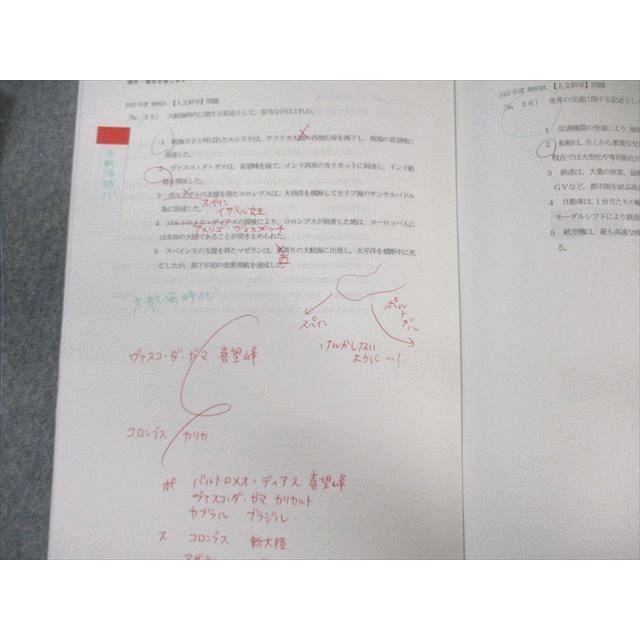 2022年度 【人文科学】問題
大航海時代に関する記述として、妥当なのはどれか。
大航海時代
1 航海王子と呼ばれたエンリケは、アフリカ
に到達した。
2 ヴァスコ・ダ・ガマは、喜望峰を経て、インド西岸のカリカットに到達し、インド航
路を開拓した。
3 の支援を得たコロンブスは、大西洋を横断してカリブ海のサンサルバドル
島に到達した。
スペイン
イサベル女王
4 バルトロメウ・ディアスの探検により、コロンブスが到着した地は、ヨーロッパ人に
は未知の大陸であることが突き止められた。
アメリゴ・ヴェスプッチ
5 スペイン王の支援を得たマゼランは、 周りの大航海に出発し、太平洋を横断中に死
亡したが、部下が初の世界周航を達成した。
西
大航海時代
スペイン
ポルトガル
けんかしない
ように…!
ヴァスコ・ダ・ガマ 喜望峰
コロンブス カリカ
ポ バルトロメオ・ディアス 喜望峰
ヴァスコ・ダ・ガマ カリカット
カブラル ブラジル
ス コロンブス 新大陸
2022年度 【人文科学】問題
世界の交通に関する記述とし
1 交通機関の発達により、地
2 船舶は、古くから重要な交
現在では大型化や専用船が
3 鉄道は、大量の旅客、貨
GVなど、都市間を結ぶ高
4 自動車は、1台当たりの輸
モーダルシフトにより鉄道
5 航空機は、最も高速な移
る。